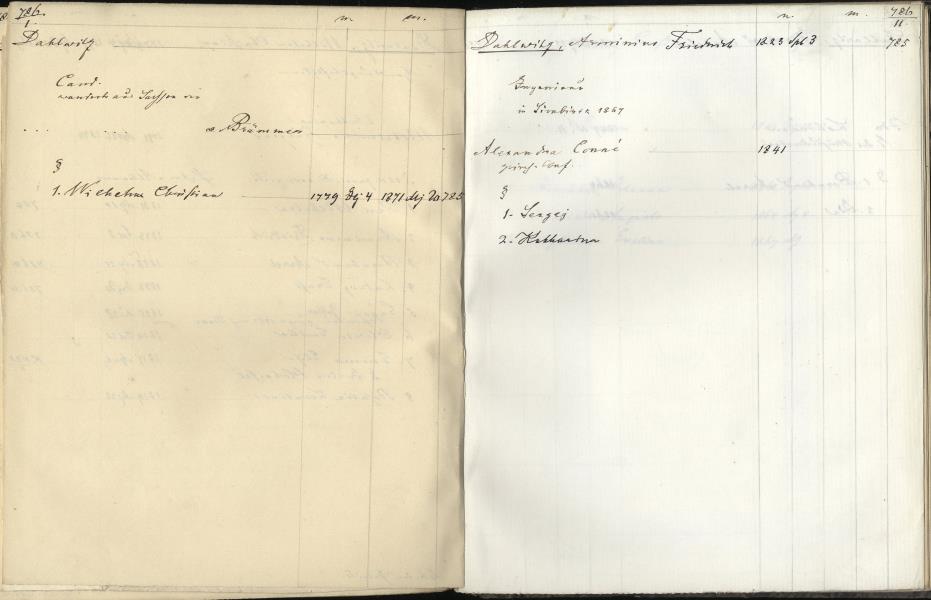 786
I.
n. m.
Dahlwitz
Cand.
wanderte aus Sachsen
. . . v Brümmer
§
1. Wilhelm Christian 1779 4 1871 20 785
786
II.
n. m.
Dahlwitz, Arminius Friedrich 1823 Spt 3 785
Ingenieur
in Simbirsk 1867
Alexandra Conné 1841
griech. Conf.
§
1. Sergej
2. Katharina